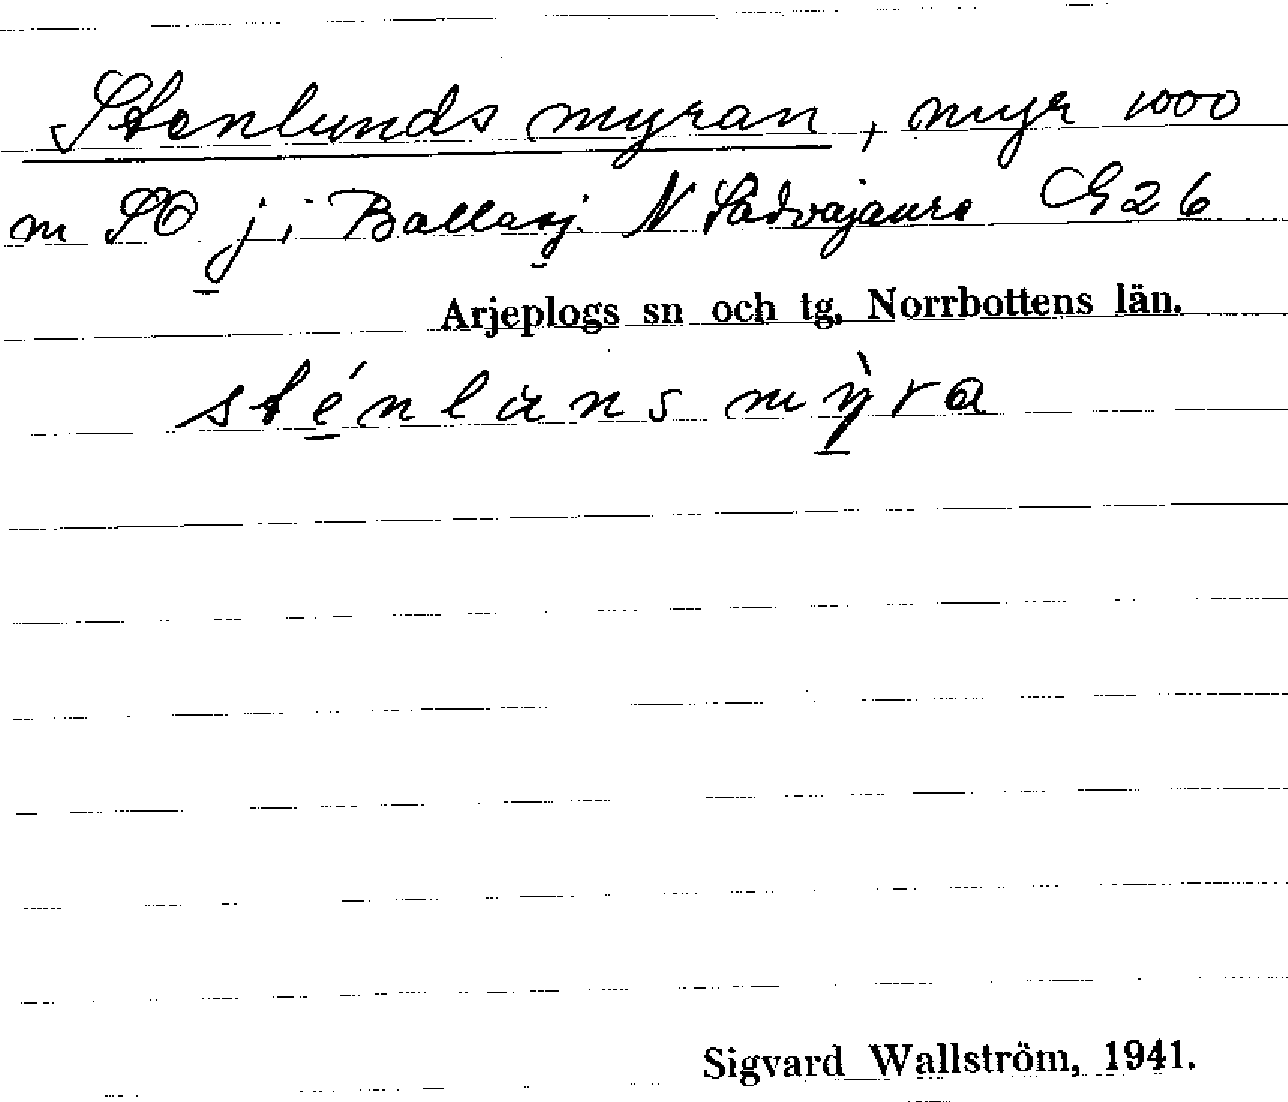 Stenlunds myran, myr 1000
m SO j i Ballasj. N Sädvajaure G26
Arjeplogs sn och tg, Norrbottens län.
sténlùns mỳra
Sigvard Wallström, 1941.